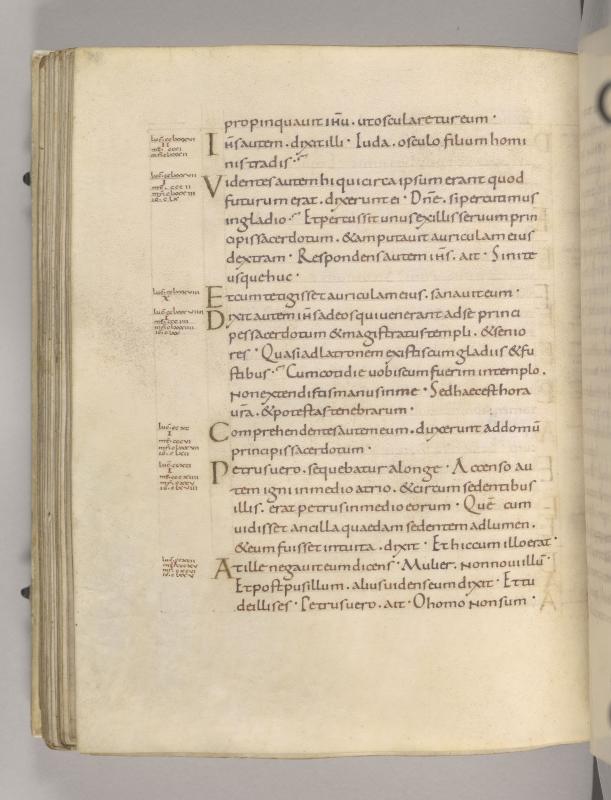 propinquauit ihu. ut oscularetur eum.
Ihs autem. dixit illi. Iuda. osculo filium homi
nis tradis.
Videntes autem hi qui circa ipsum erant quod
futurum erat. dixerunt ei. Dne. si percutimus
in gladio. Et percussit unus ex illis seruum prin
cipis sacerdotum. & amputauit auriculam eius
dextram. Respondens autem ihs. ait. Sinite
usque huc.
Et cum tetigisset auriculam eius. sanauit eum.
Dixit autem ihs ad eos qui uenerant ad se princi
pes sacerdotum & magistratus templi. & senio
res. Quasi ad latronem existis cum gladiis & fu
stibus. Cum cotidie uobiscum fuerim in templo.
Non extendistis manus in me. Sed haec est hora
ura. & potestas tenebrarum.
Comprehendentes autem eum. duxerunt ad domū
principis sacerdotum.
Petrus uero. sequebatur a longe. Accenso au
tem igni in medio atrio. & circum sedentibus
illis. erat petrus in medio eorum. Quē cum
uidisset ancilla quaedam sedentem ad lumen.
& eum fuisset intuita. dixit. Et hic cum illo erat.
At ille negauit eum dicens. Mulier. Non noui illū.
Et post pusillum. alius uidens eum dixit. Et tu
de illis es. Petrus uero. ait. O homo Non sum.